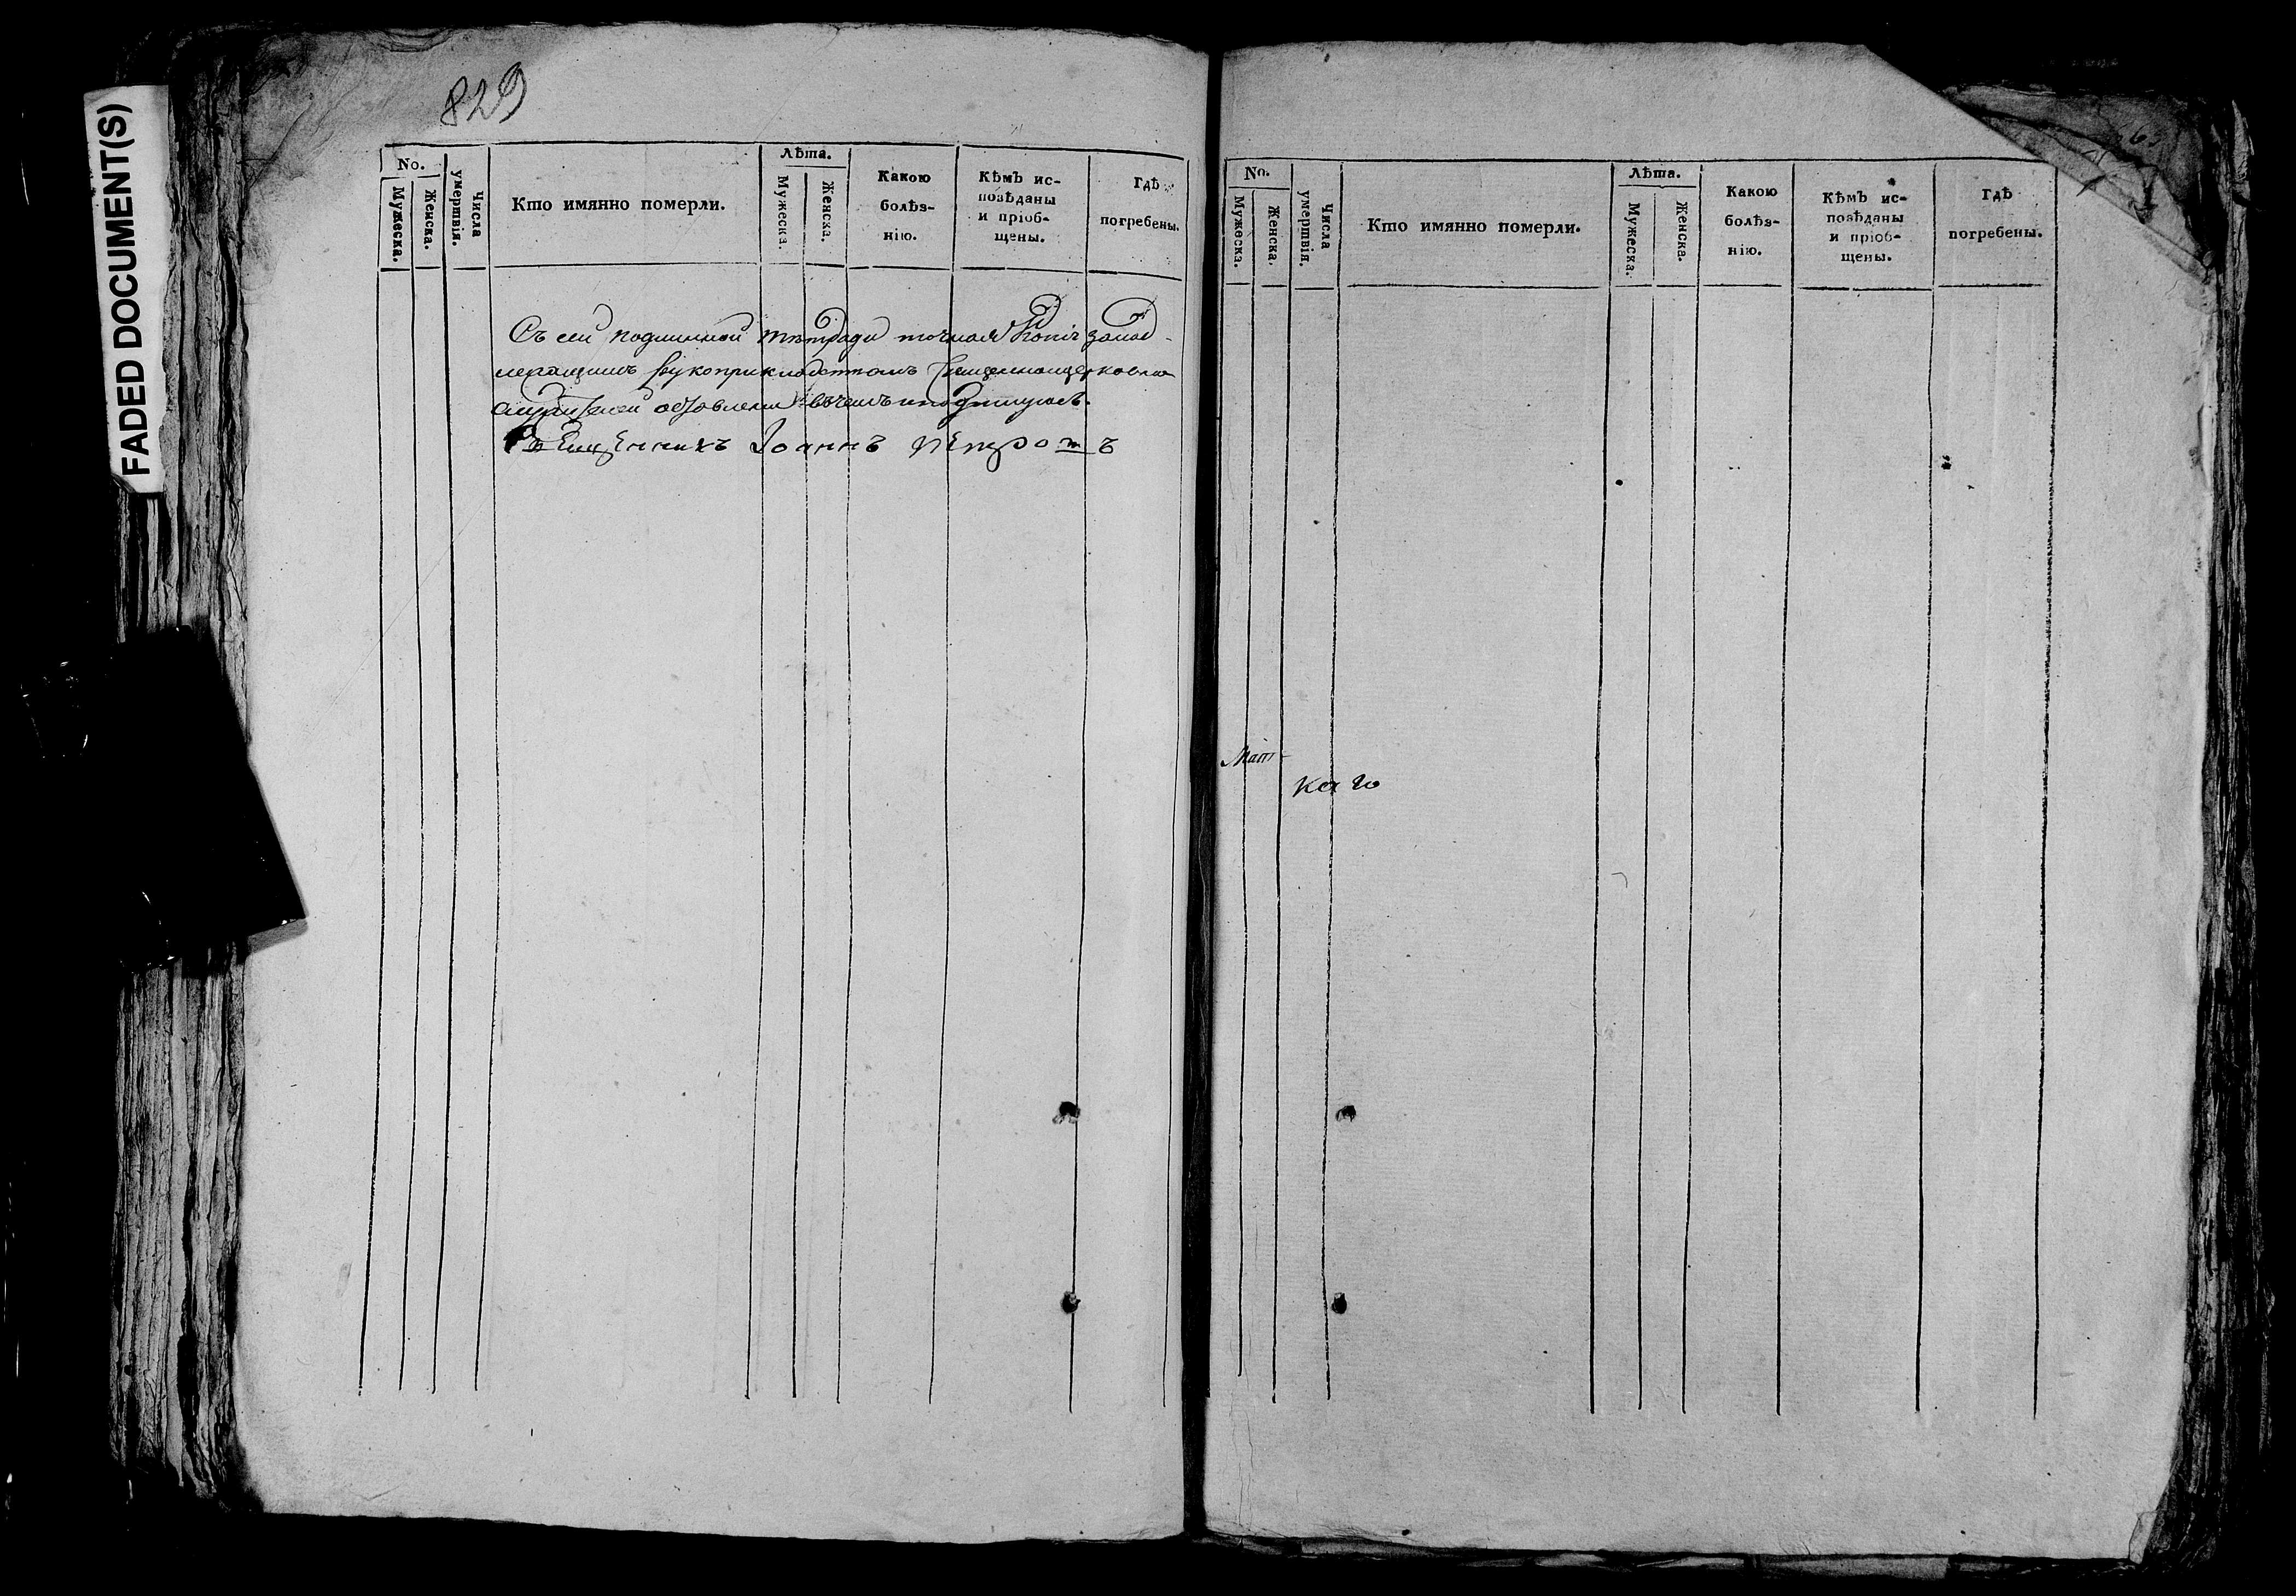 FADED DOCUMENT(S)
829
No.
Мужеска.
Женска.
Числа
умертвія.
Кто имянно померли.
Лѣта.
Мужеска.
Женска.
Какою
болѣз-
нію.
Кѣмъ ис-
повѣданы
и пріоб-
щены.
Гдѣ
погребены.
Съ сей подлинной тетради точная копія занад-
лежащимъ рукоприкладствомъ священноцерковно
служителей
Священникъ Іоаннъ Петровъ
No.
Мужеска.
Женска.
Числа
умертвія.
Кто имянно померли.
Лѣта.
Мужеска.
Женска.
Какою
болѣз-
нію.
Кѣмъ ис-
повѣданы
и пріоб-
щены.
Гдѣ
погребены.
каго